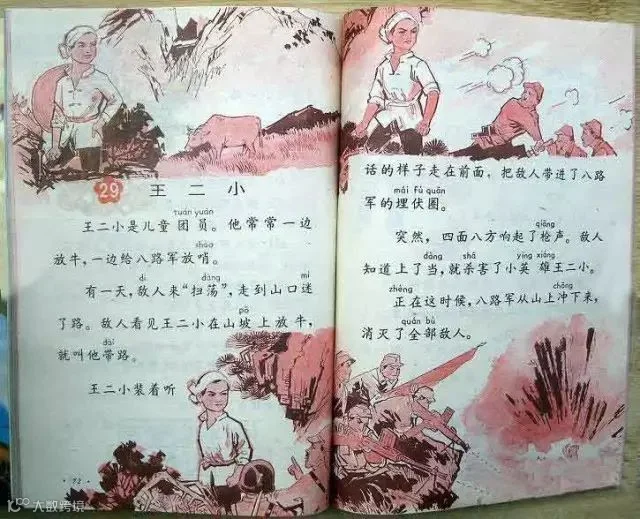 29 王二小
tuán yuán
王二小是儿童团员。他常常一边
shào
放牛，一边给八路军放哨。
dí dàng mí
有一天，敌人来“扫荡”，走到山口迷
pō
了路。敌人看见王二小在山坡上放牛，
dài
就叫他带路。
王二小装着听
· 72 ·
话的样子走在前面，把敌人带进了八路
mái fú quān
军的埋伏圈。
qiāng
突然，四面八方响起了枪声。敌人
dàng shā yīng xióng
知道上了当，就杀害了小英雄王二小。
zhèng chōng
正在这时候，八路军从山上冲下来，
quán bù
消灭了全部敌人。
大数跨境